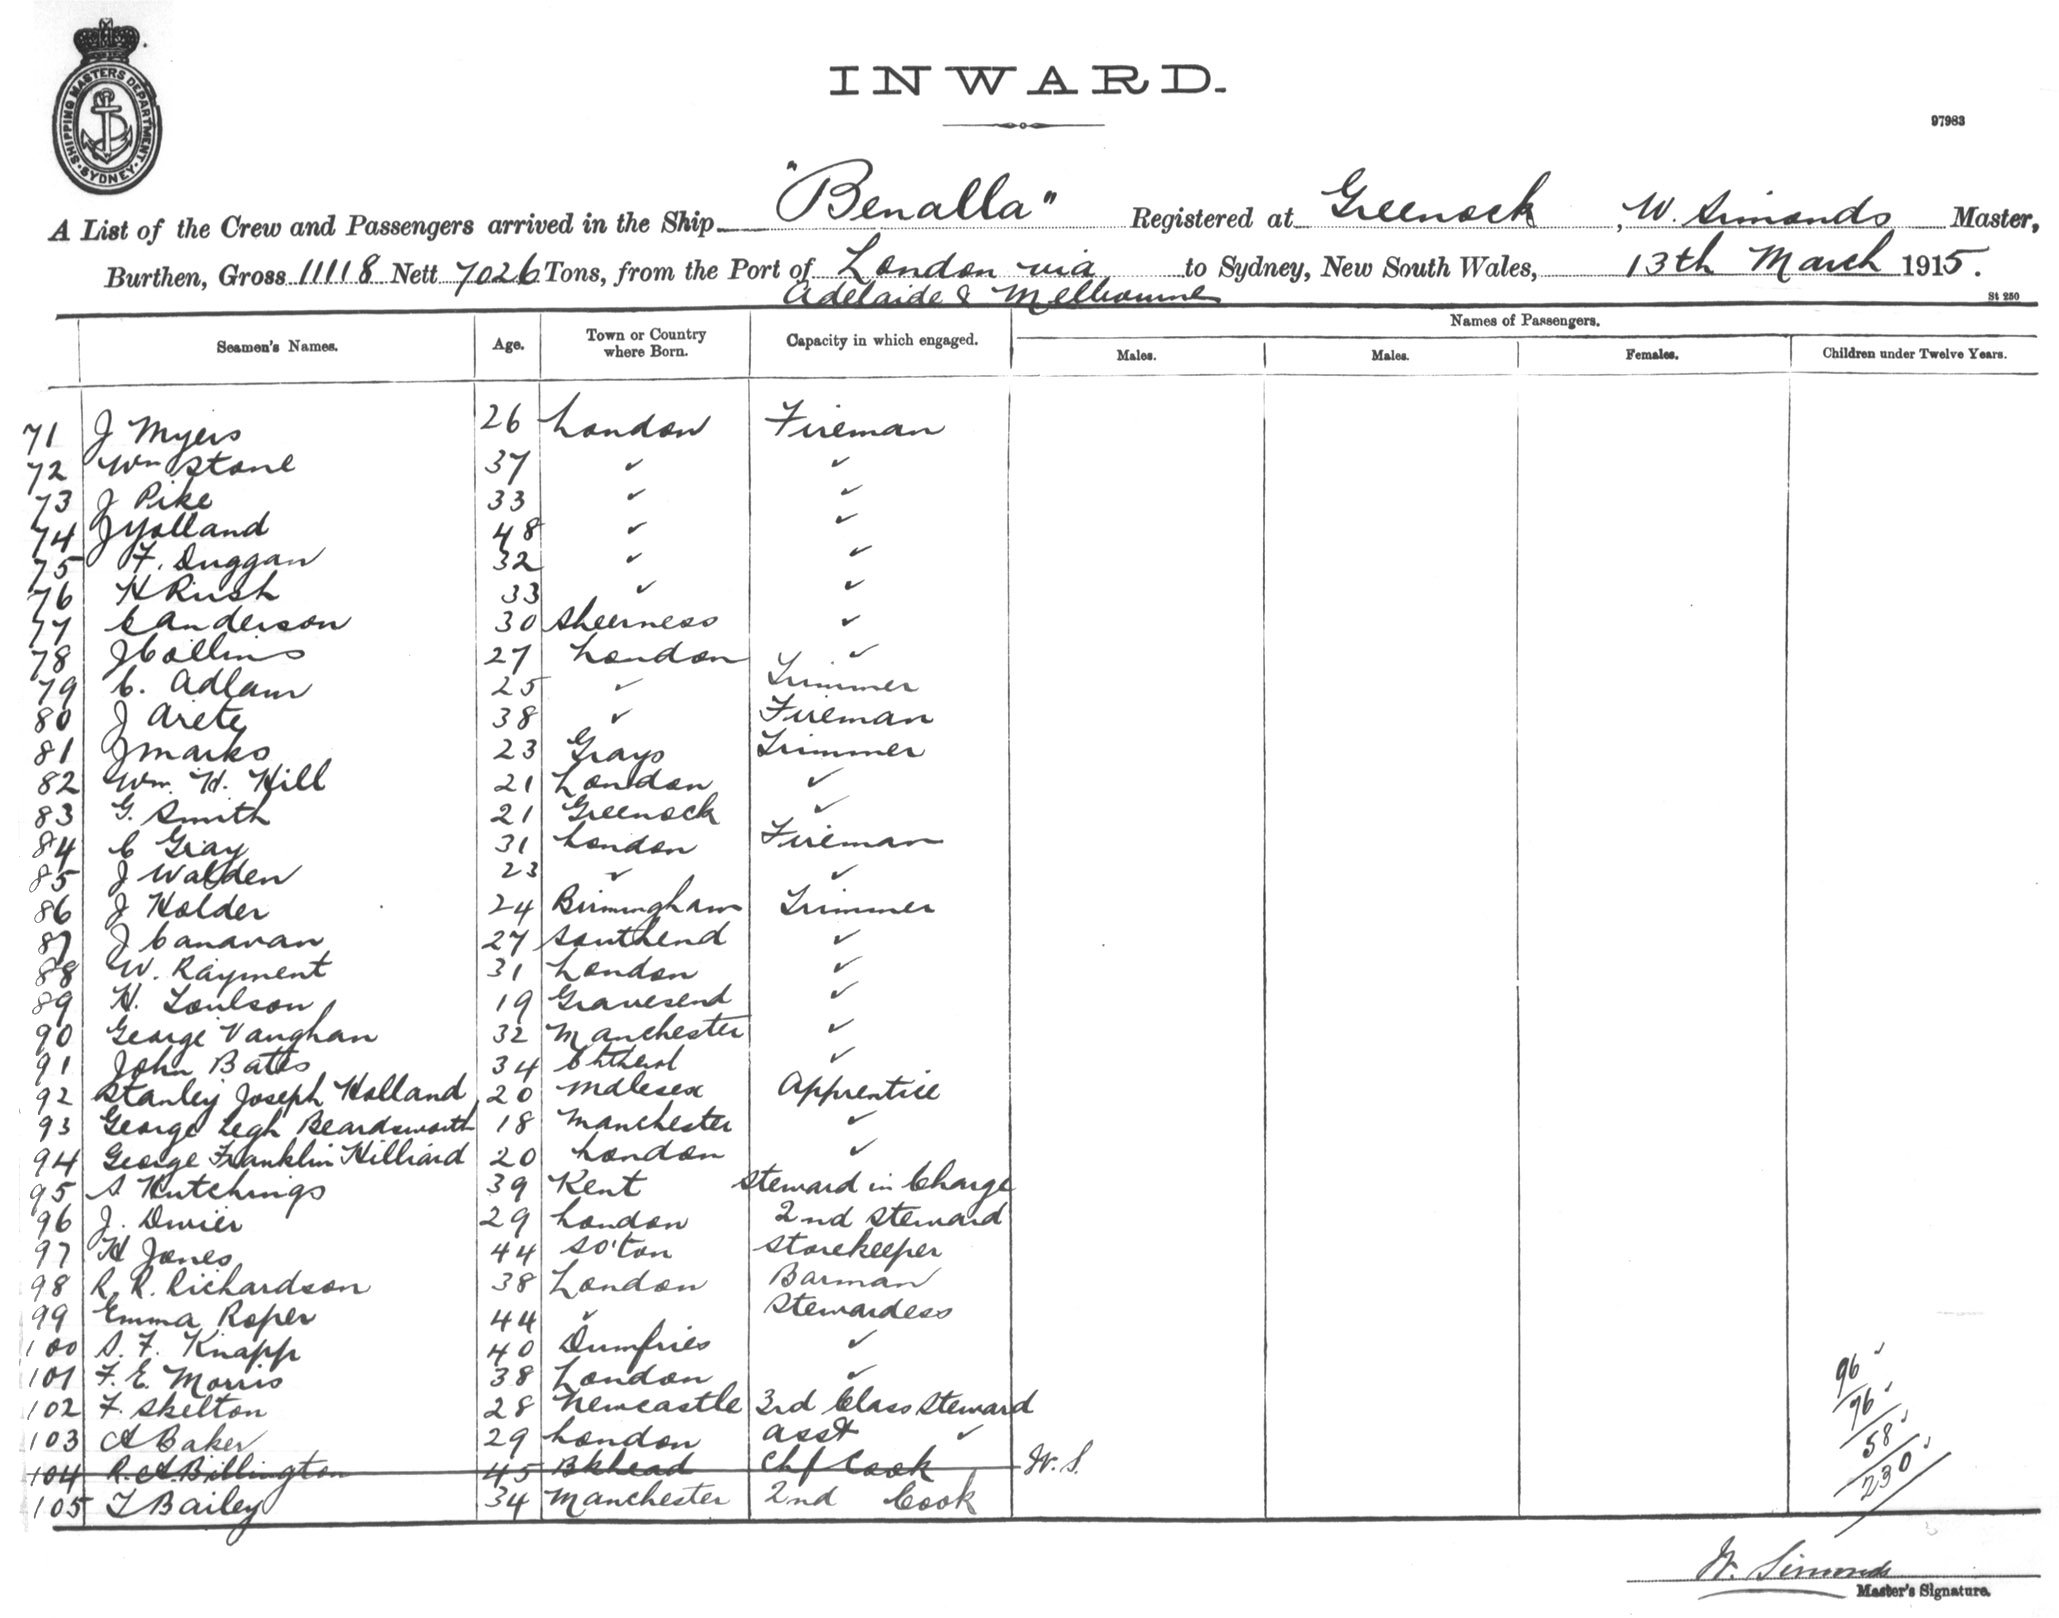 SHIPPING MASTERS DEPARTMENT · SYDNEY ·
INWARD.
97983
A List of the Crew and Passengers arrived in the Ship "Benalla" Registered at Greenock, W. Simonds Master,
Burthen, Gross 11118 Nett 7026 Tons, from the Port of London via to Sydney, New South Wales, 13th March 1915.
Adelaide & Melbourne
St 250
Names of Passengers.
Seamen's Names. Age. Town or Country where Born. Capacity in which engaged. Males. Males. Females. Children under Twelve Years.
71 J Myers 26 London Fireman
72 Wm Stone 37 ✓ ✓
73 J Pike 33 ✓ ✓
74 J Yolland 48 ✓ ✓
75 F. Duggan 32 ✓ ✓
76 H Rush 33 ✓ ✓
77 C Anderson 30 Sheerness ✓
78 J Collins 27 London ✓
79 C. Adlam 25 ✓ Trimmer
80 J Arete 38 ✓ Fireman
81 J Marks 23 Grays Trimmer
82 Wm. H. Hill 21 London ✓
83 G. Smith 21 Greenock ✓
84 C Gray 31 London Fireman
85 J Walden 23 ✓ ✓
86 J Holder 24 Birmingham Trimmer
87 J Canavan 27 Southend ✓
88 W. Rayment 31 London ✓
89 H. Toulson 19 Gravesend ✓
90 George Vaughan 32 Manchester ✓
91 John Bates 34 ✓
92 Stanley Joseph Holland 20 Mdlesex Apprentice
93 George Legh Beardsworth 18 Manchester ✓
94 George Franklin Hilliard 20 London ✓
95 S Hutchings 39 Kent Steward in Charge
96 J. Dwier 29 London 2nd Steward
97 H Jones 44 So'ton Storekeeper
98 R. R. Richardson 38 London Barman
99 Emma Roper 44 ✓ Stewardess
100 S. F. Knapp 40 Dumfries ✓
101 F. E. Morris 38 London ✓
102 F. Skelton 28 Newcastle 3rd Class Steward
103 A Baker 29 London Asst ✓
104 R. A. Billington 45 Bkhead Chf Cook W. S.
105 T Bailey 34 Manchester 2nd Cook
96 ✓
76 ✓
58 ✓
230 ✓
W. Simonds
Master's Signature.